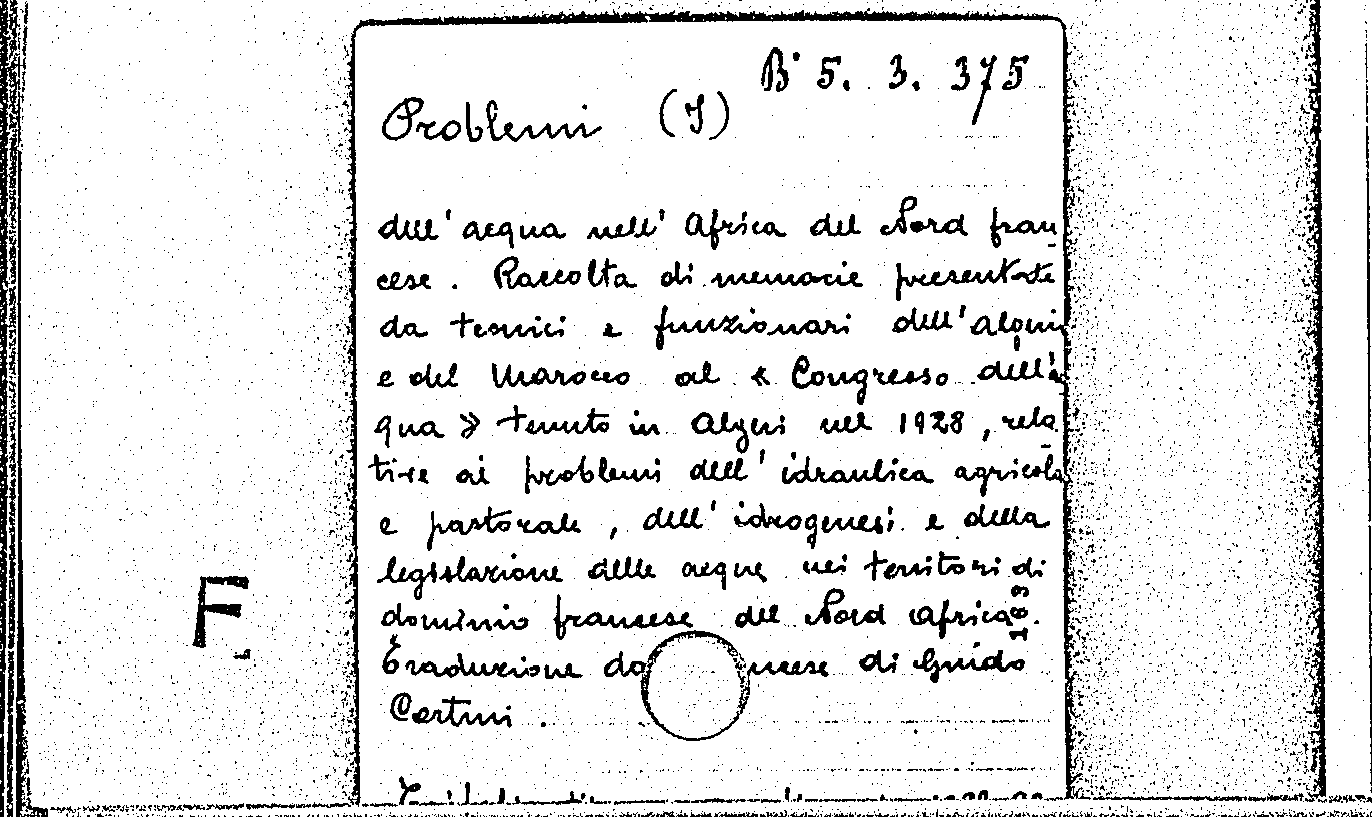 B° 5. 3. 375
Problemi (I)
dell' acqua nell' Africa del Nord fran-
cese. Raccolta di memorie presentate
da tecnici e funzionari dell' Algeri
e del Marocco al « Congresso dell'a
qua » tenuto in Algeri nel 1928, rela-
tive ai problemi dell' idraulica agricola
e pastorale, dell' idrogenesi e della
legislazione delle acque nei territori di
dominio francese del Nord Africa.
Traduzione da ncese di Guido
Certini.
F